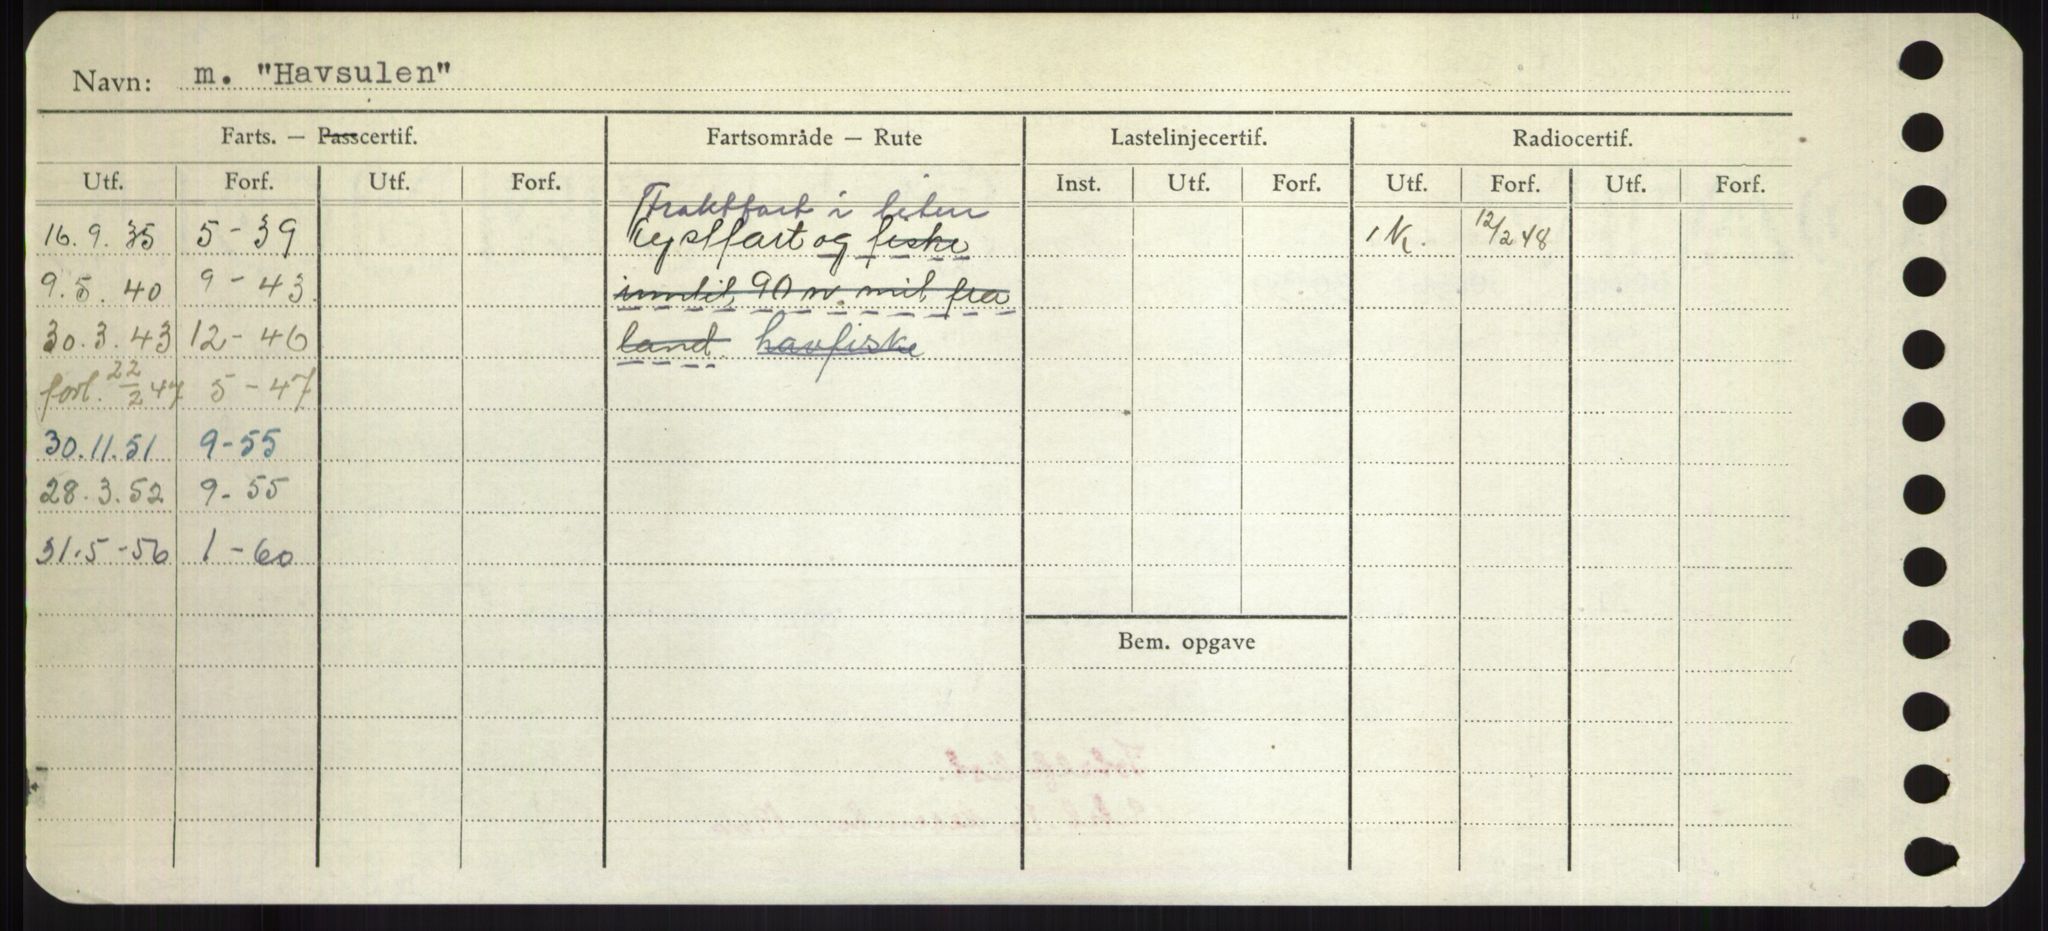 Navn: m. "Havsulen"
Farts. — Passcertif. Fartsområde — Rute Lastelinjecertif. Radiocertif.
Utf. Forf. Utf. Forf. Inst. Utf. Forf. Utf. Forf. Utf. Forf.
Fraktfart i liten
16. 9. 35 5 - 39 kystfart og fiske 1 K. 12/2 48
9. 5. 40 9 - 43 inntil 90 n. mil fra
30. 3. 43 12 - 46 land. havfiske
forl. 22/2 47 5 - 47
30. 11. 51 9 - 55
28. 3. 52 9 - 55
31. 5 - 56 1 - 60
Bem. opgave